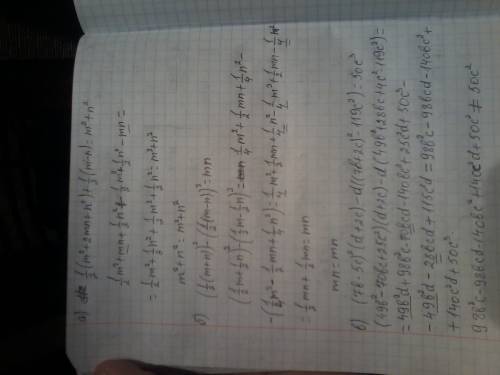 а) ½(m²+2mn+n²)+½(m-n)²=m²+n²
½m²+mn+½n²+½m²+½n²-mn=
=½m²+½n²+½m²+½n²=m²+n²
m²+n²=m²+n²
б) (½(m+n))²-(½(m-n))²=mn
(½m+½n)²-(½m-½n)²= ¼m²+½mn+¼n²-
-(¼m²-½mn+¼n²)=¼m²+½mn+¼n²-¼m²+½mn-¼n²
=½mn+½mn=mn
mn=mn
в) (7b-5c)²(d+2c)-d((7b+2c)²-119c²)=50c³
(49b²-70bc+25c²)(d+2c)-d(49b²+28bc+4c²-119c²)=
=49b²d+98b²c-70bcd-140bc²+25c²d+50c³-
-49b²d-28bcd+115c²d=98b²c-98bcd-140bc²+
+140c²d+50c³
98b²c-98bcd-140bc²+140c²d+50c³≠50c³